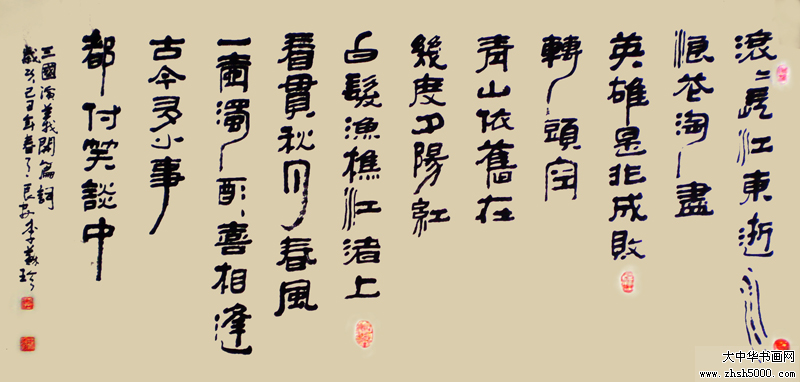 滾〻長江東逝水
浪花淘盡
英雄是非成敗
轉頭空
青山依舊在
幾度夕陽紅
白髮漁樵江渚上
看貫秋月春風
一壺濁酒喜相逢
古今多少事
都付笑談中
三國演義開篇詞
歲次己丑年春
大中华书画网
www.zhsh5000.com